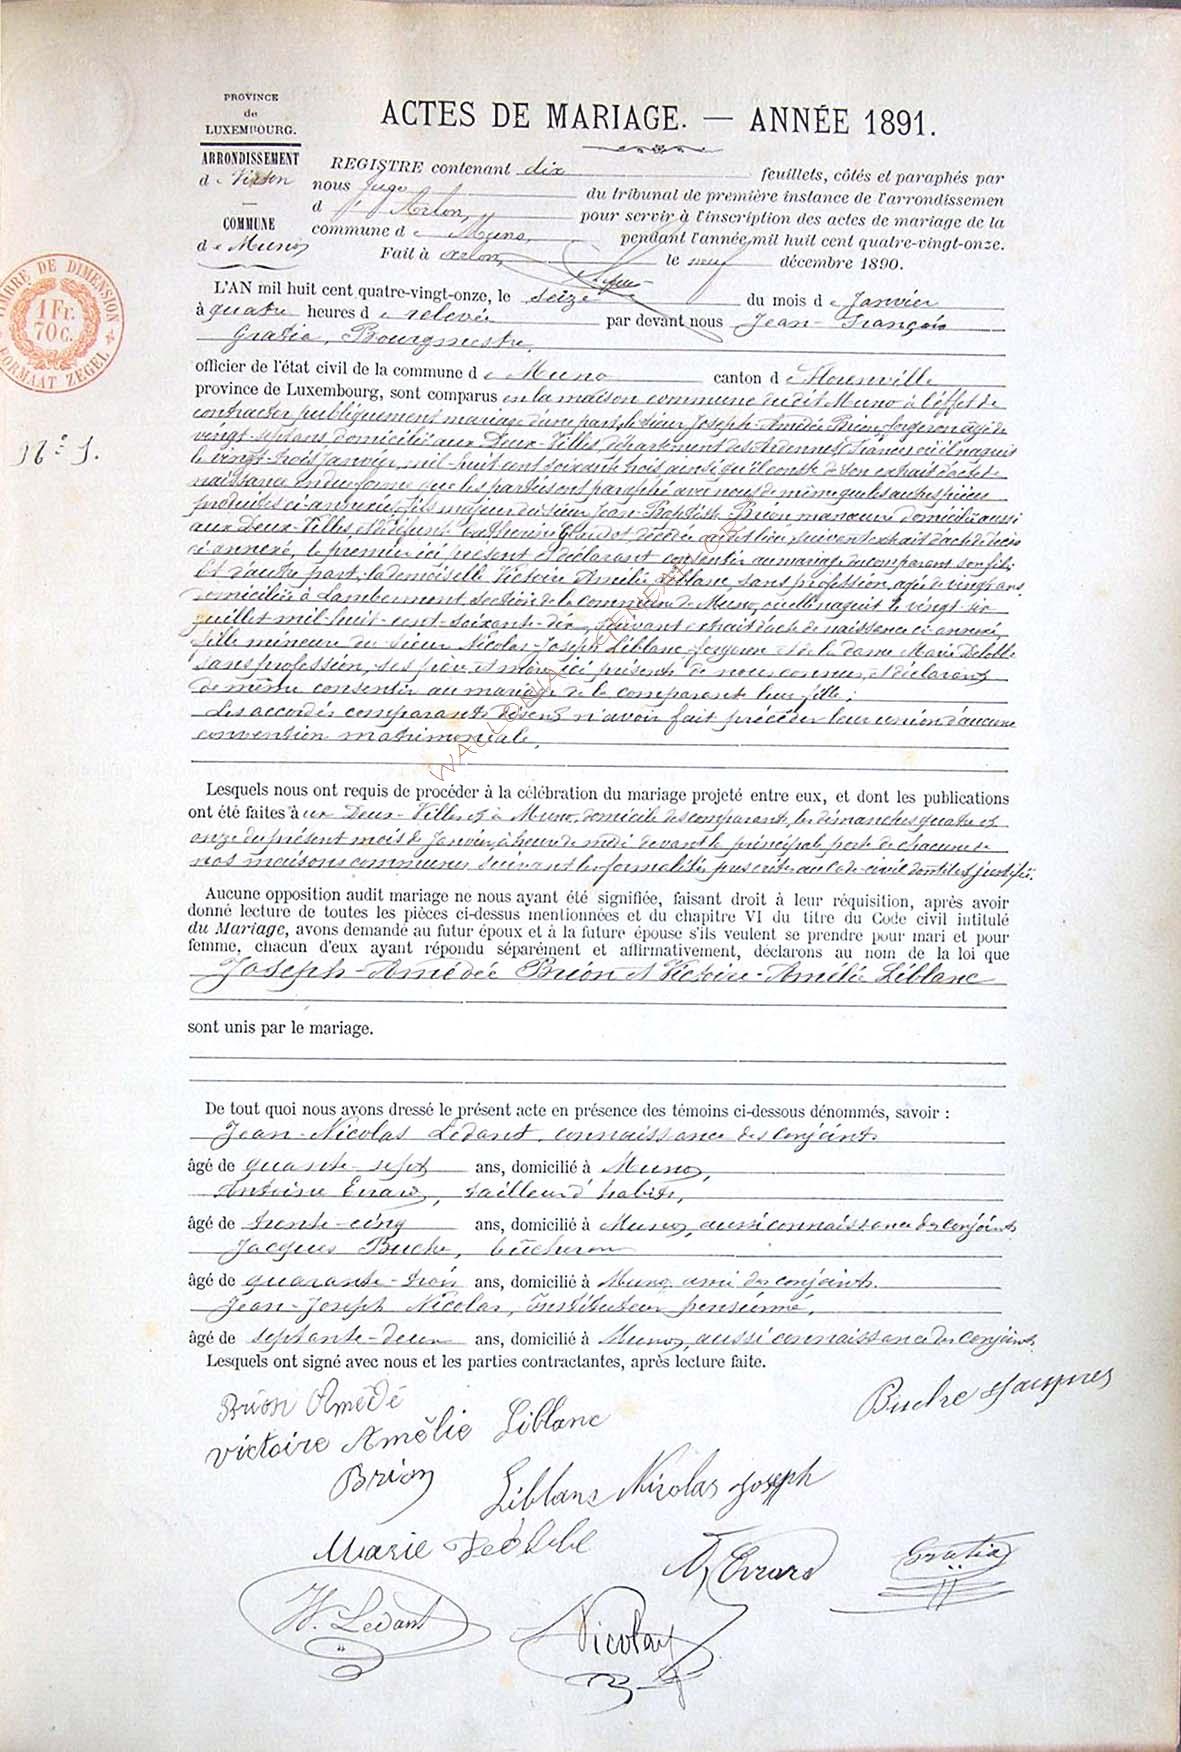 PROVINCE
de
LUXEMBOURG.
ARRONDISSEMENT
de Virton
COMMUNE
de Muno
ACTES DE MARIAGE. — ANNÉE 1891.
REGISTRE contenant dix feuillets, côtés et paraphés par
nous Juge du tribunal de première instance de l'arrondissemen
d'Arlon, pour servir à l'inscription des actes de mariage de la
commune de Muno, pendant l'année mil huit cent quatre-vingt-onze.
Fait à Arlon, le neuf décembre 1890.
TIMBRE DE DIMENSION
1 Fr.
70 C.
FORMAAT ZEGEL
N° 1.
L'AN mil huit cent quatre-vingt-onze, le seize du mois de Janvier
à quatre heures de relevée par devant nous Jean-François
Gratia, Bourgmestre,
officier de l'état civil de la commune de Muno canton de Florenville
province de Luxembourg, sont comparus en la maison commune dudit Muno à l'effet de
contracter publiquement mariage d'une part, le sieur Joseph-Amédée Brion, forgeron âgé de
vingt-sept ans domicilié aux Deux-Villes, département des Ardennes (France) où il naquit
le vingt-trois Janvier mil-huit-cent soixante trois ainsi qu'il conste de son extrait d'acte de
naissance en due forme que les parties ont paraphé avec nous de même que les autres pièces
produites ci-annexées, fils majeur du sieur Jean-Baptiste Brion manœuvre domicilié aussi
aux Deux-Villes, et de défunte Catherine décédée audit lieu, suivant extrait d'acte de décès
ci annexé, le premier ici présent et déclarant consentir au mariage du comparant son fils;
Et d'autre part, la demoiselle Victoire Amélie Liblanc, sans profession, âgée de vingt ans,
domiciliée à Lambermont, section de la commune de Muno, où elle naquit le vingt-six
juillet mil-huit-cent-soixante-dix, suivant extrait d'acte de naissance ci annexé,
fille mineure du sieur Nicolas-Joseph Liblanc, forgeron et de la dame Marie
sans profession, ses père et mère, ici présents de nous connus, et déclarant
de même consentir au mariage de la comparante leur fille;
Les accordés comparants disent n'avoir fait précéder leur union d'aucune
convention matrimoniale.
Lesquels nous ont requis de procéder à la célébration du mariage projeté entre eux, et dont les publications
ont été faites aux Deux-Villes et à Muno, domicile des comparants, les dimanches quatre et
onze du présent mois de Janvier, à heure de midi devant la principale porte de chacune de
nos maisons communes suivant les formalités prescrites au Code civil dont il est justifié.
Aucune opposition audit mariage ne nous ayant été signifiée, faisant droit à leur réquisition, après avoir
donné lecture de toutes les pièces ci-dessus mentionnées et du chapitre VI du titre du Code civil intitulé
du Mariage, avons demandé au futur époux et à la future épouse s'ils veulent se prendre pour mari et pour
femme, chacun d'eux ayant répondu séparément et affirmativement, déclarons au nom de la loi que
Joseph-Amédée Brion et Victoire-Amélie Liblanc
sont unis par le mariage.
De tout quoi nous avons dressé le présent acte en présence des témoins ci-dessous dénommés, savoir :
Jean-Nicolas Ledant, connaissance des conjoints
âgé de quante-sept ans, domicilié à Muno,
Antoine Evrard, tailleur d'habits,
âgé de trente-cinq ans, domicilié à Muno, aussi connaissance des conjoints
Jacques Buche, bûcheron
âgé de quarante-trois ans, domicilié à Muno ami des conjoints.
Jean-Joseph Nicolas, Instituteur pensionné,
âgé de septante-deux ans, domicilié à Muno, aussi connaissance des conjoints.
Lesquels ont signé avec nous et les parties contractantes, après lecture faite.
Brion Amédé
Buche Jacques
victoire Amélie Liblanc
Brion
Liblanc Nicolas Joseph
Marie
Evrard
Gratia
N. Ledant
Nicolay